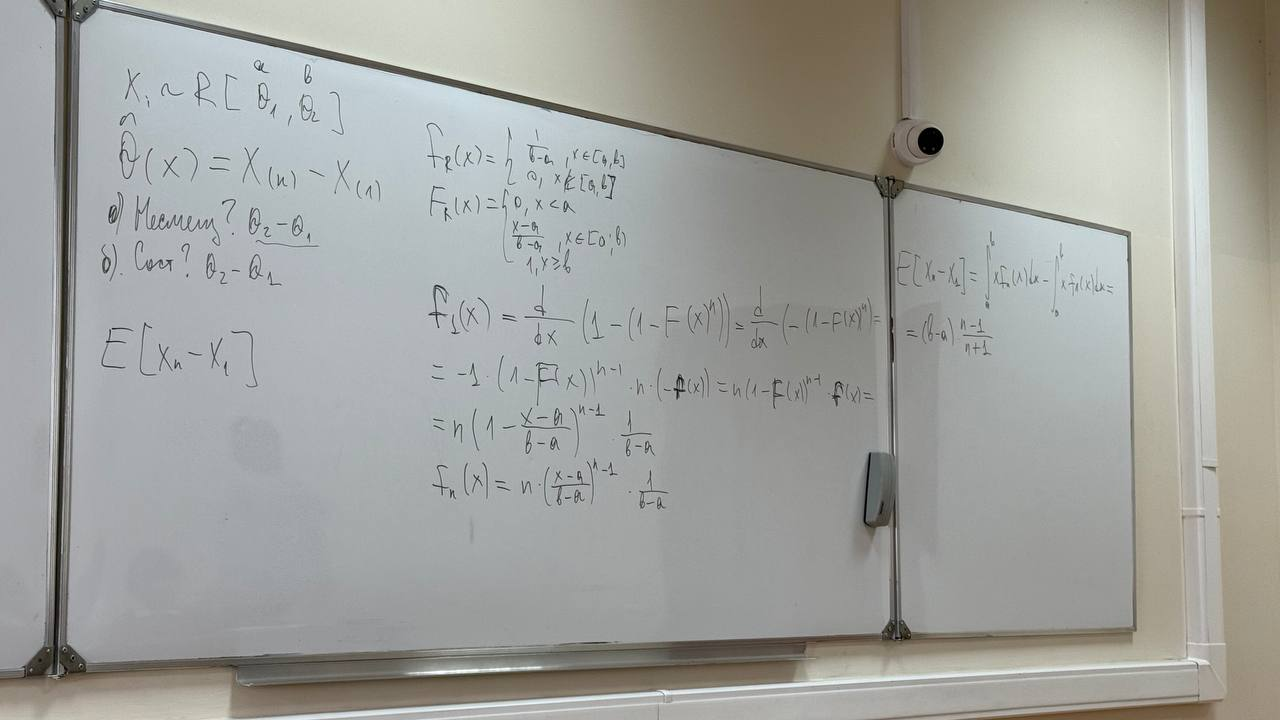 a b
X_i ~ R[θ_1, θ_2]
θ̂(x) = X_(n) − X_(1)
а) Несмещ? θ_2 − θ_1
б). Сост? θ_2 − θ_1
E[X_n − X_1]
f_R(x) = { 1/(b−a), x ∈ [a, b]
0, x ∉ [a, b]
F_R(x) = { 0, x < a
(x−a)/(b−a), x ∈ [a; b)
1, x ≥ b
f_1(x) = d/dx (1 − (1 − F(x)^n)) = d/dx (−(1 − F(x)^n) =
= −1 · (1 − F(x))^(n−1) · n · (−f(x)) = n(1 − F(x))^(n−1) · f(x) =
= n(1 − (x−a)/(b−a))^(n−1) · 1/(b−a)
f_n(x) = n · ((x−a)/(b−a))^(n−1) · 1/(b−a)
E[X_n − X_1] = ∫_a^b x f_n(x) dx − ∫_a^b x f_1(x) dx =
= (b−a) · (n−1)/(n+1)